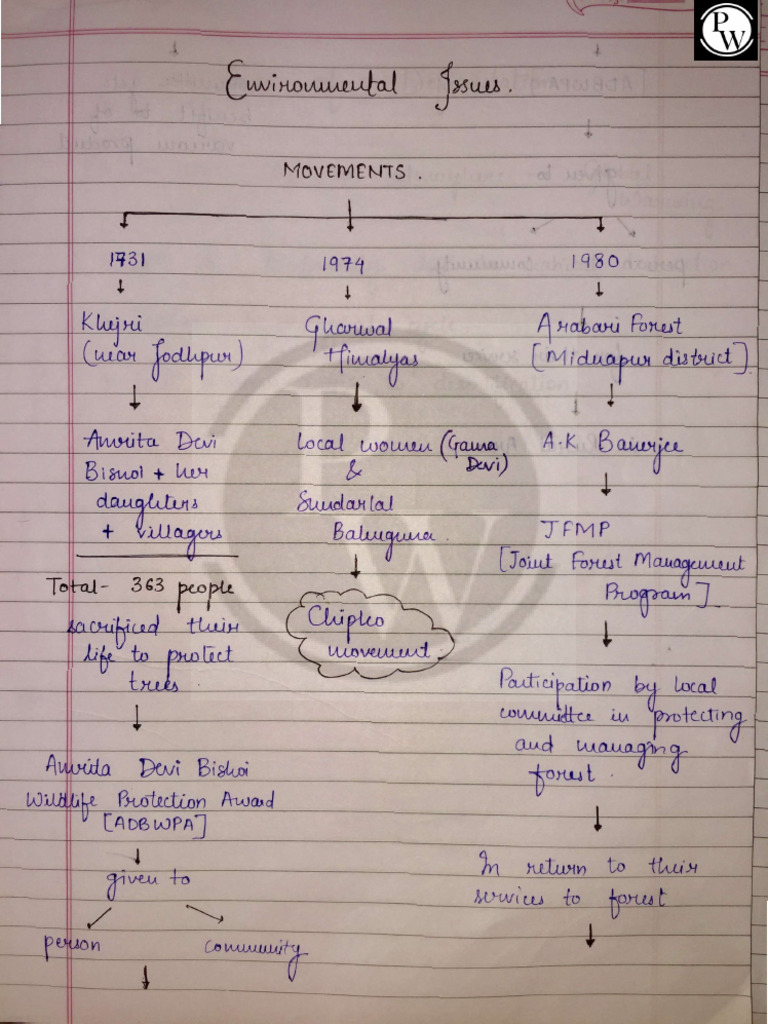 PW
Environmental Issues.
MOVEMENTS.
1731
Khejri
(near Jodhpur)
Amrita Devi
Bisnoi + her
daughters
+ villagers
Total- 363 people
sacrificed their
life to protect
trees.
Amrida Devi Bishoi
Wildlife Protection Award
[ADBWPA]
given to
person community
1974
Gharwal
Himalyas
Local women (Gaura
Devi)
&
Sundarlal
Bahuguna.
Chipko
movement.
1980
Arabari Forest
[Midnapur district]
A.K Banerjee
JFMP
[Joint Forest Management
Program]
Participation by local
committee in protecting
and managing
forest.
In return to their
services to forest